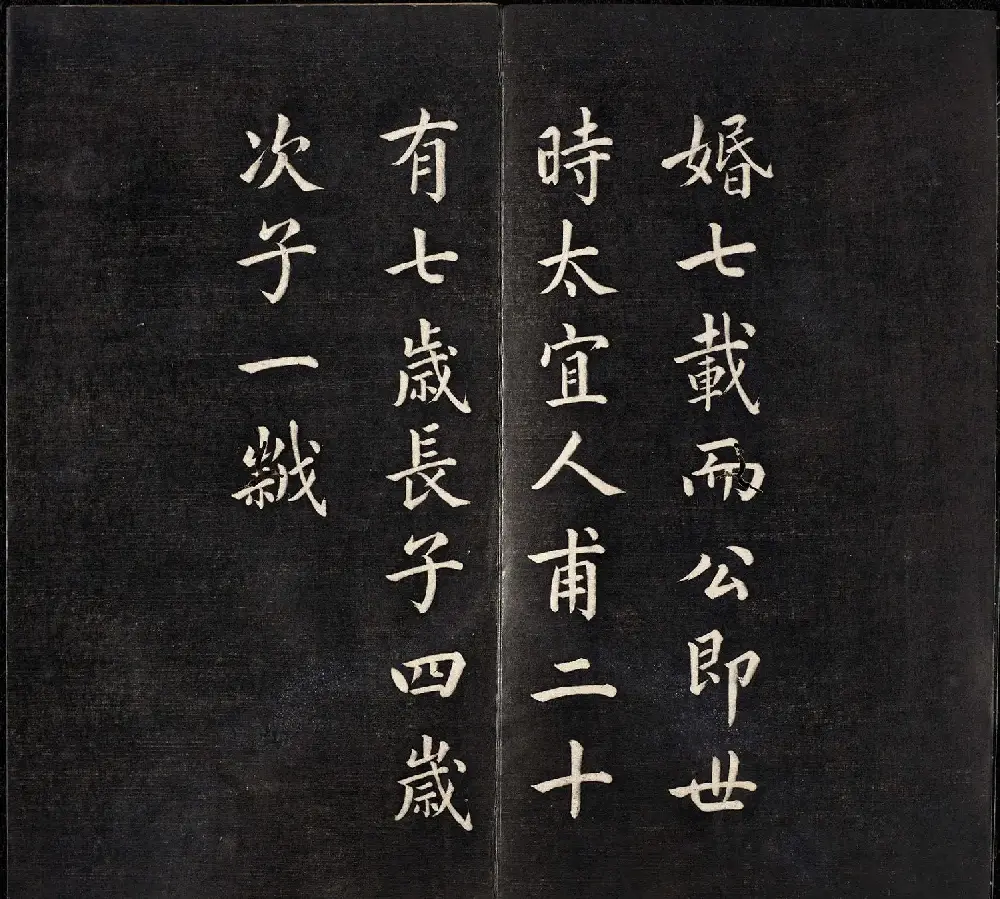 婚七載而公即世
時太宜人甫二十
有七歲長子四歲
次子一歲